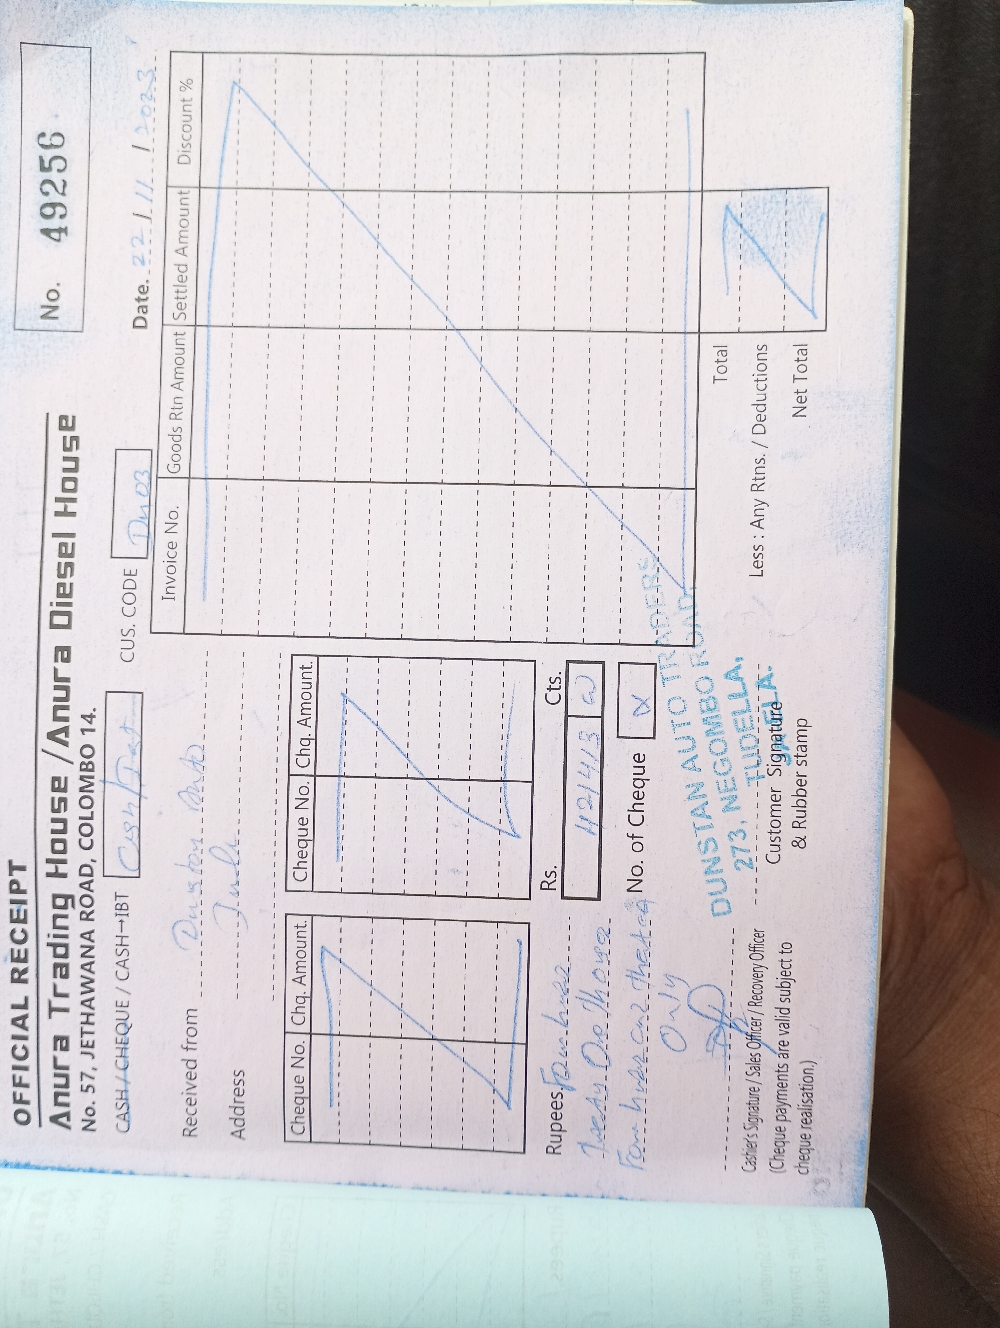 OFFICIAL RECEIPT
Anura Trading House / Anura Diesel House
No. 57, JETHAWANA ROAD, COLOMBO 14.
No. 49256
CASH / CHEQUE / CASH→IBT
CUS. CODE Du 03
Date. 22 / 11 / 2023
Received from Dunston Auto
Address
Invoice No. Goods Rtn Amount Settled Amount Discount %
Cheque No. Chq. Amount. Cheque No. Chq. Amount.
Rupees Four
Only
Rs. Cts.
No. of Cheque
Total
Less : Any Rtns. / Deductions
Net Total
DUNSTAN AUTO TRADERS
273, NEGOMBO ROAD,
TUDELLA,
Cashier's Signature / Sales Officer / Recovery Officer
(Cheque payments are valid subject to
cheque realisation.)
Customer Signature
& Rubber stamp